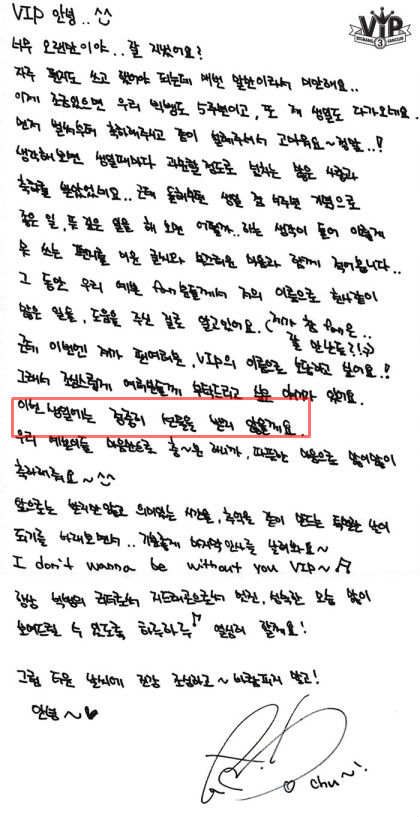 VIP 안녕..^^
VIP
BIGBANG FANCLUB
3
너무 오랜만이야.. 잘 지냈어요?
자주 편지도 쓰고 했어야 되는데 매번 말만이라서 미안해요..
이제 조금있으면 우리 빅뱅도 5주년이고, 또 제 생일도 다가오네요..
먼저 벌써부터 축하해주시고 같이 설레주셔서 고마워요~정말..!
생각해보면 생일때마다 과분할정도로 넘치는 많은 사랑과
축하를 받았었네요.. 근데 올해부턴 생일 겸 5주년 기념으로
좋은 일, 뜻 깊은 일을 해 보면 어떨까.. 라는 생각이 들어 이렇게
못 쓰는 편지를 미운 글씨와 부끄러운 마음과 함께 적어봅니다..
그 동안 우리 예쁜 fan분들께서 저의 이름으로 한사랑이
많은 일을, 도움을 주신 걸로 알고있어요. (제가 참 fan은..
잘 만난듯?!)
근데 이번엔 저가 편여러분, VIP의 이름으로 보답하고 싶어요..!
그래서 조심스럽게 여러분들께 부탁드리고 싶은 얘기가 있어요.
이번 생일에는 정중히 선물을 받지 않을게요.
우리 예쁜이들 마음만으로 충~분하니까, 따뜻한 마음으로 많이많이
축하해줘요~^^
앞으로는 받지만 않고 의미있는 시간을, 추억을 같이 만드는 특별한 날이
되기를 바래보면서.. 기분좋게 마지막 인사를 날려봐요~
I don't wanna be without you VIP~♬
항상 빅뱅의 리더로서 지드래곤으로서 멋진, 성숙한 모습 많이
보여드릴 수 있도록 하루하루♪ 열심히 할게요!
그럼 더운 날씨에 건강 조심하고~ 바람피지 말고!
안녕~♥
chu~!